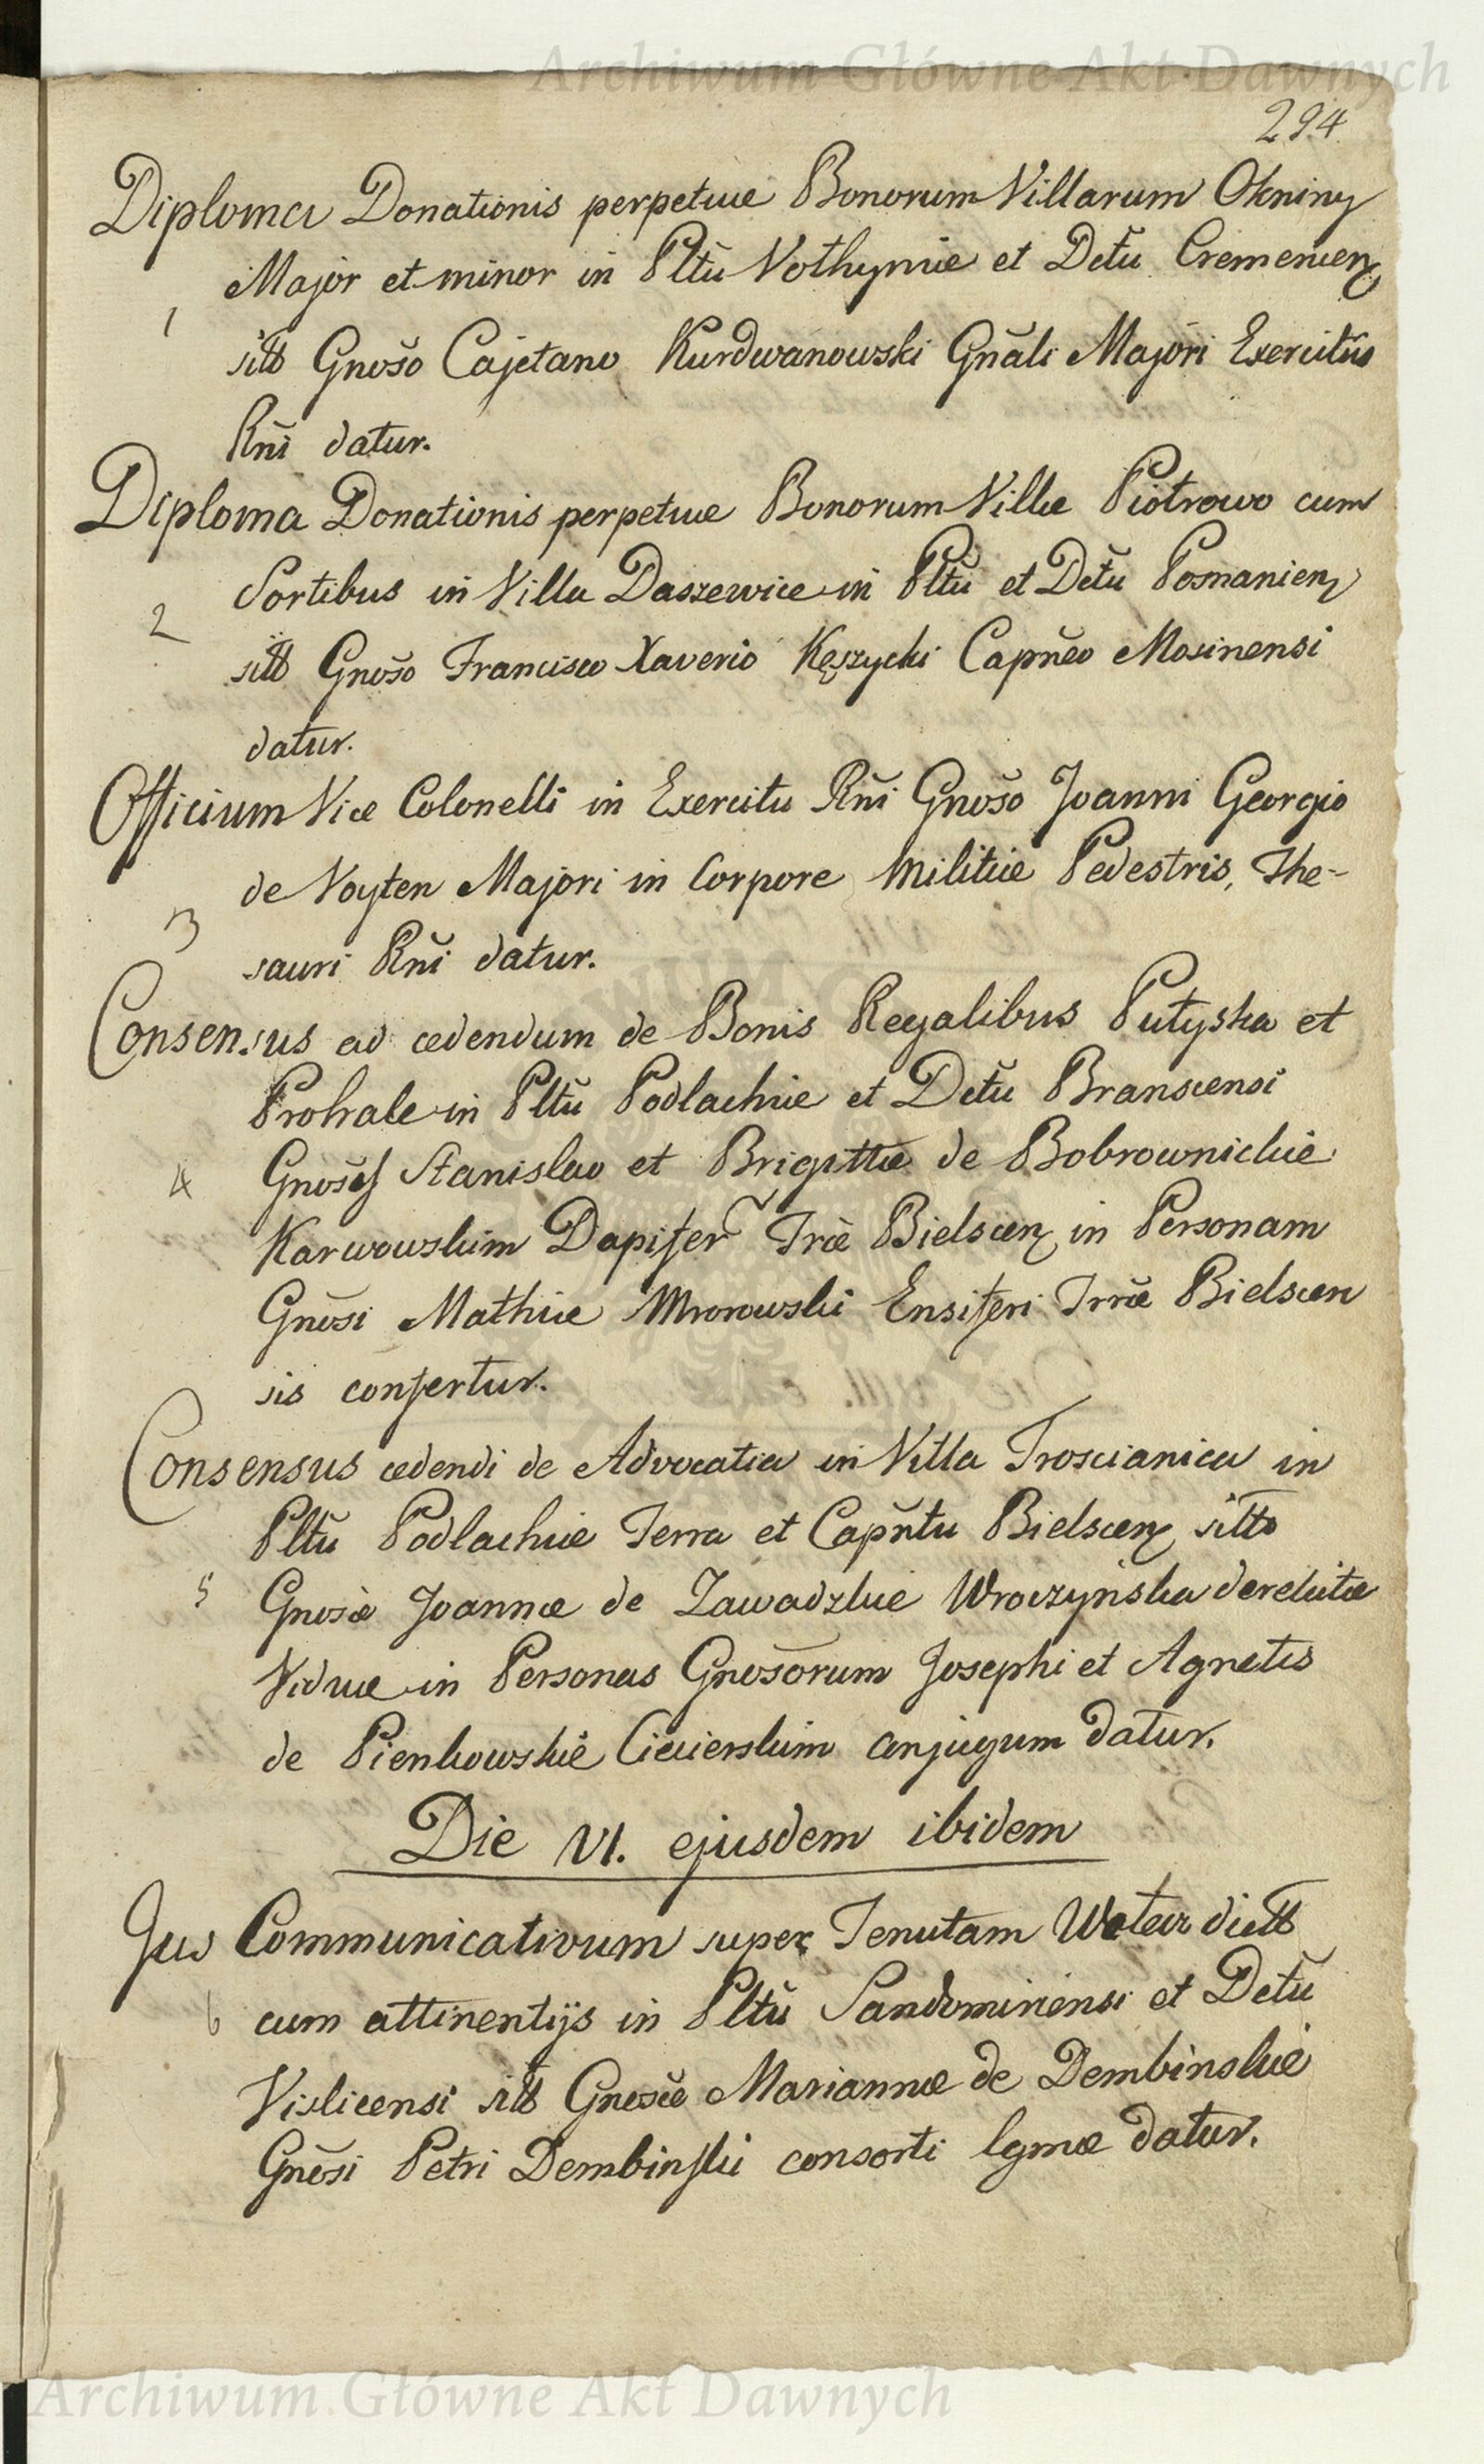 Archiwum Główne Akt Dawnych
294
Diploma Donationis perpetuæ Bonorum Villarum Okniny
Major et minor in Pltũ Volhyniæ et Dctũ Cremenecen̄
1
sitt Gnoso Cajetano Kurdwanowski Gñali Majori Exercitus
Rñi datur.
Diploma Donationis perpetuæ Bonorum Villæ Piotrowo cum
Sortibus in Villa Daszewice in Pltũ et Dctũ Posnanien
2
sitt Gnošo Francisco Xaverio Kęszycki Capñeo Mosinensi
datur.
Officium Vice Colonelli in Exercitu Rñi Gnošo Joanni Georgio
de Voyten Majori in Corpore Militiæ Pedestris, The-
3
sauri Rñi datur.
Consensus ad cedendum de Bonis Regalibus Putyska et
Prohale in Pltũ Podlachiæ et Dctũ Branscensi
4
Stanislao et Brigittæ de Bobrownickie
Karwowskim Dapifer Træ Bielscen in Personam
Gnõsi Mathiæ Mrorowski Ensiferi Trræ Bielscen
sis confertur.
Consensus cedendi de Advocatia in Villa Troscianica in
Pltũ Podlachiæ Terra et Capñtu Bielscen sitto
5
Gnosæ Joannæ de Zawadzkie Wroczyńska derelictæ
Viduæ in Personas Gnosorum Josephi et Agnetis
de Pienkowskie Ciecierskim conjugum datur.
Die VI. ejusdem ibidem
Jus Communicativum super Tenutam Wola dictt
6
cum attinentijs in Pltũ Sandomiriensi et Dctũ
Vislicensi sitt Gnosæ Mariannæ de Dembinskie
Gnõsi Petri Dembinski consorti lgmæ datur.
Archiwum Główne Akt Dawnych